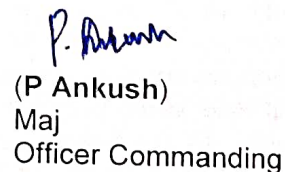 P. Ankush
(P Ankush)
Maj
Officer Commanding